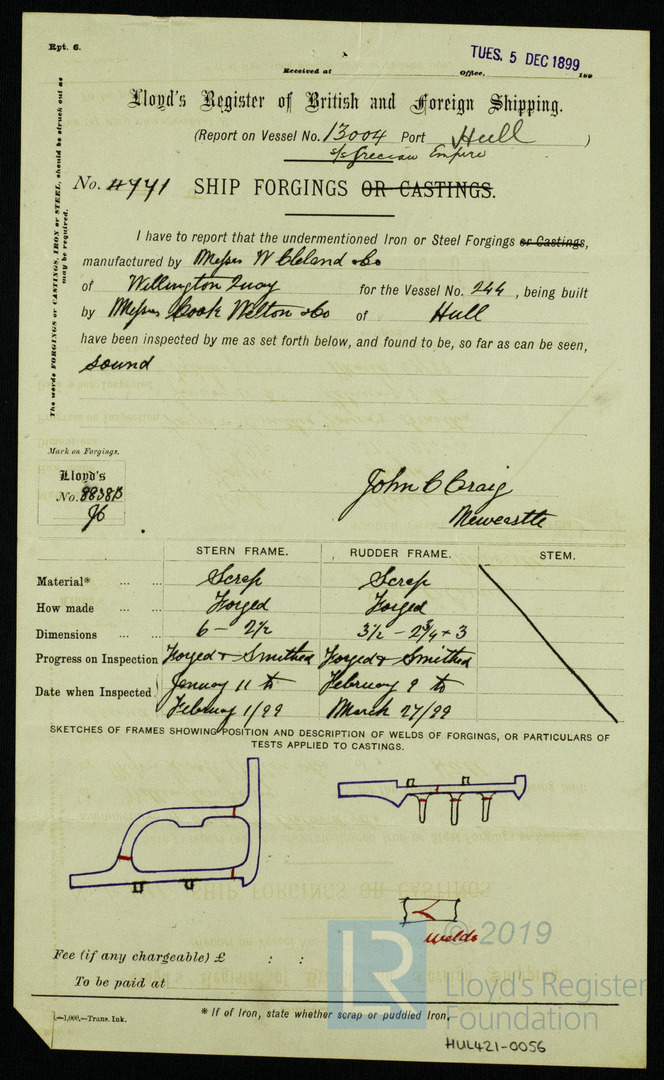 Rpt. 6.
TUES. 5 DEC 1899
Received at Office, 189
Lloyd's Register of British and Foreign Shipping.
(Report on Vessel No. 13004 Port Hull )
s/s Grecian Empire
No. 4771 SHIP FORGINGS OR CASTINGS.
The words FORGINGS or CASTINGS, IRON or STEEL, should be struck out as may be required.
I have to report that the undermentioned Iron or Steel Forgings or Castings,
manufactured by Messrs W Cleland & Co
of Willington Quay for the Vessel No. 244 , being built
by Messrs Cook Welton & Co of Hull
have been inspected by me as set forth below, and found to be, so far as can be seen,
sound
Mark on Forgings.
Lloyd's
No. 8838B
JC
John C Craig
Newcastle
STERN FRAME. RUDDER FRAME. STEM.
Material* ... ... Scrap Scrap
How made ... ... Forged Forged
Dimensions ... ... 6 – 2½ 3½ – 2¾ + 3
Progress on Inspection Forged & Smithed Forged & Smithed
Date when Inspected Jenuay 11 to February 9 to
February 1/99 March 27/99
SKETCHES OF FRAMES SHOWING POSITION AND DESCRIPTION OF WELDS OF FORGINGS, OR PARTICULARS OF
TESTS APPLIED TO CASTINGS.
welds
© 2019
Lloyd's Register
Foundation
LR
Fee (if any chargeable) £ : :
To be paid at
—1,000.—Trans. Ink.
* If of Iron, state whether scrap or puddled Iron.
HUL421-0056